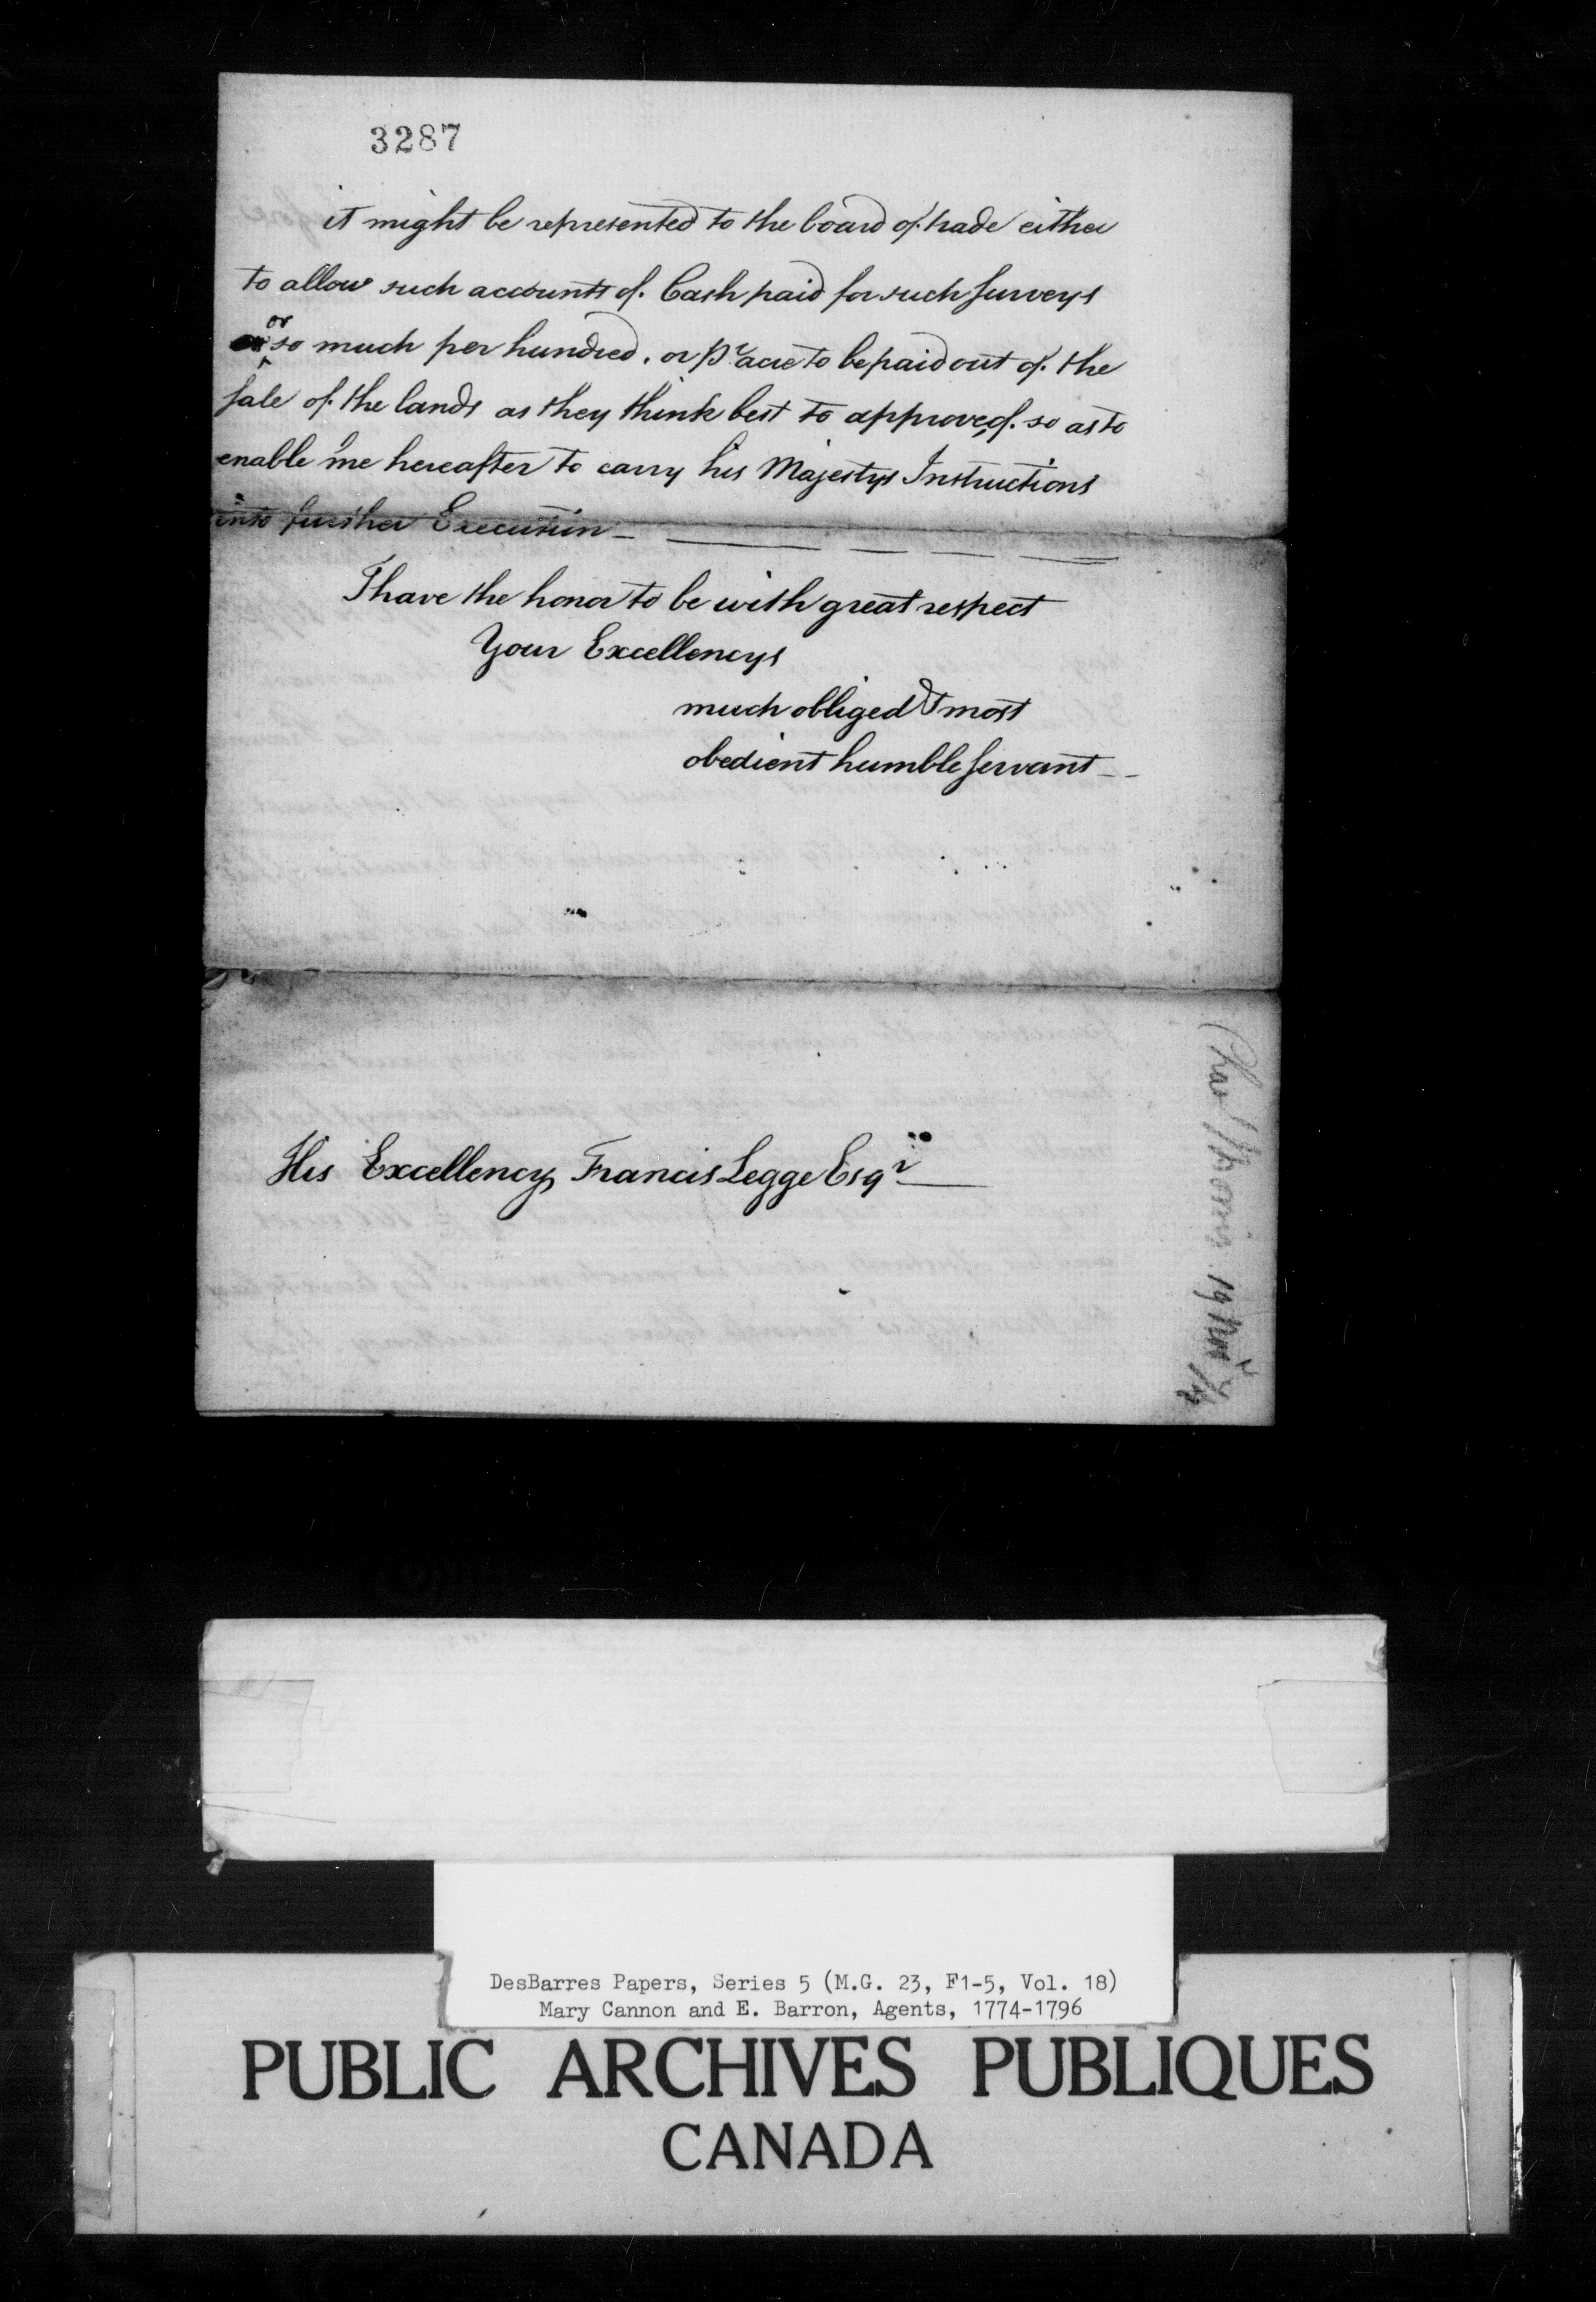 3287
it might be represented to the board of trade either
to allow such accounts of Cash paid for such surveys
or so much per hundred. or pr acre to be paid out of the
sale of the lands as they think best to approve of. so as to
enable me hereafter to carry his Majestys Instructions
into further Execution
I have the honor to be with great respect
Your Excellencys
much obliged & most
obedient humble servant
His Excellency Francis Legge Esqr
Chas Morris 19 Novr
DesBarres Papers, Series 5 (M.G. 23, F1-5, Vol. 18)
Mary Cannon and E. Barron, Agents, 1774-1796
PUBLIC ARCHIVES PUBLIQUES
CANADA